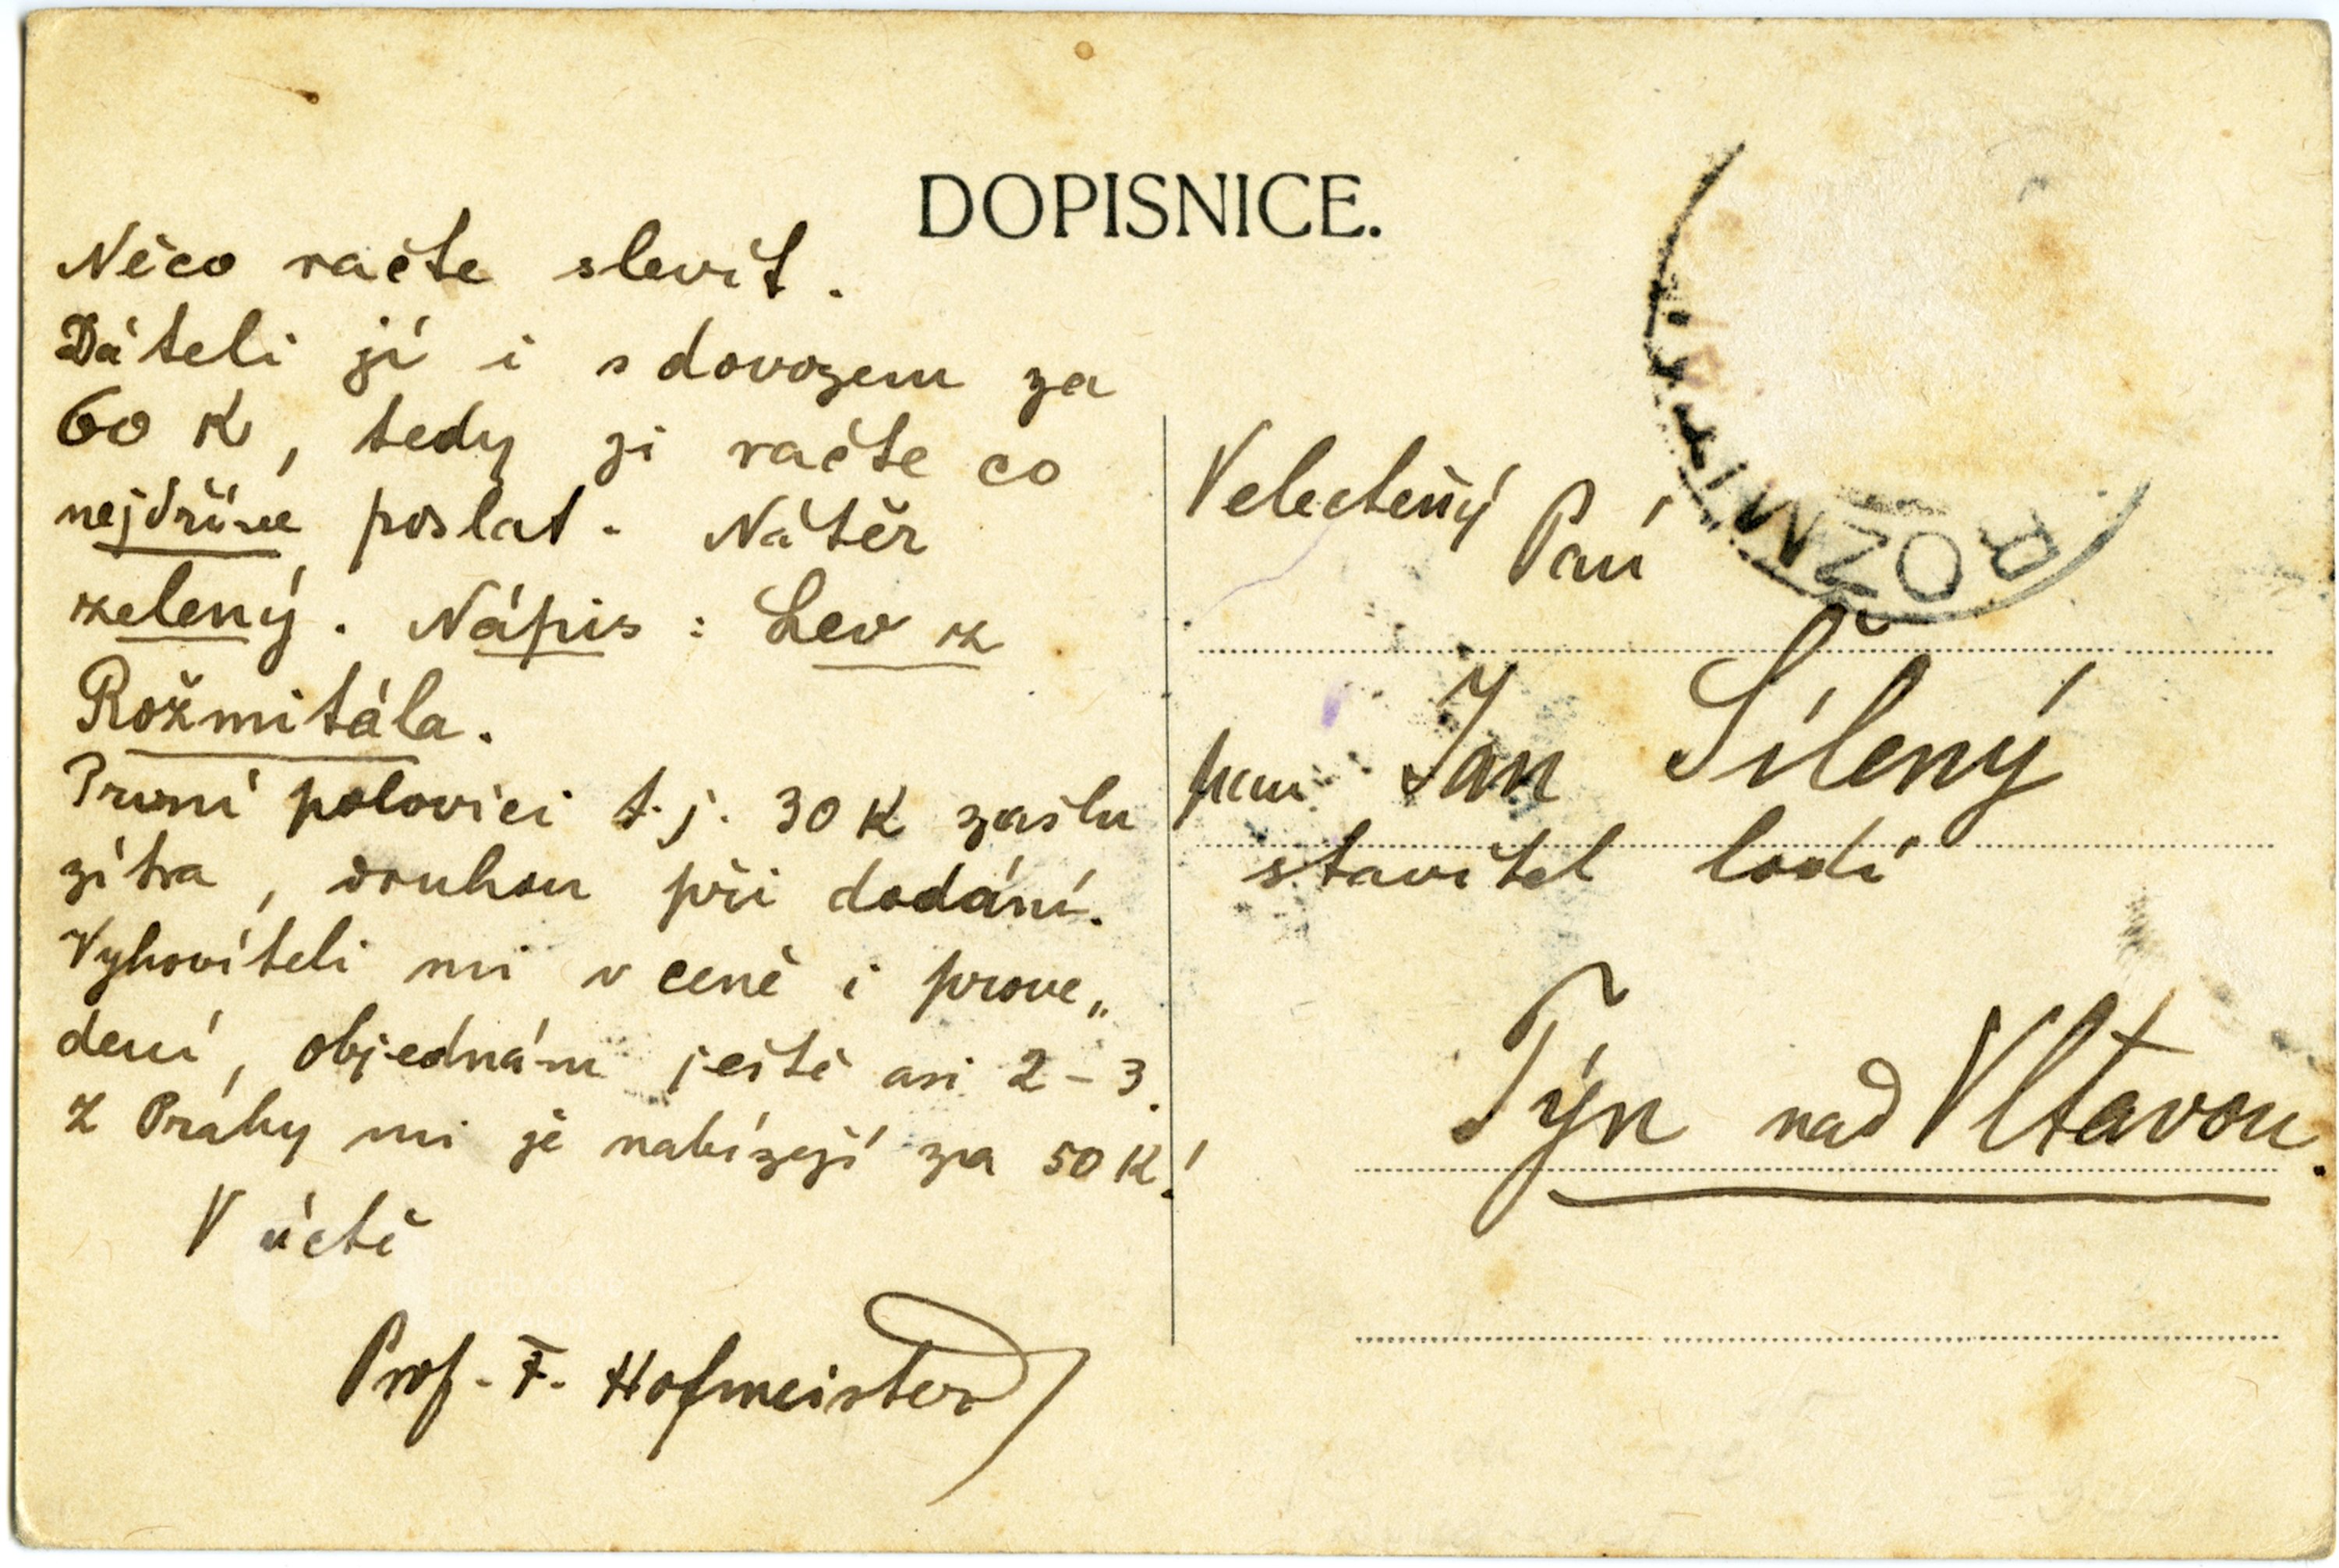 DOPISNICE.
Něco račte slevit.
Dáteli jí i s dovozem za
60 K, tedy ji račte co
nejdříve poslat. Nátěr
zelený. Nápis: Lev z
Rožmitála.
První polovici t.j. 30 K zašlu
zítra, druhou při dodání.
Vyhovíteli mi v ceně i prove„
dení, objednám ještě asi 2–3.
Z Prahy mi je nabízejí za 50 K!
V úctě
Prof. F. Hofmeister
ROŽMITÁL
Velectěný
Pan
pan Jan Šílený
stavitel lodí
Týn nad Vltavou.